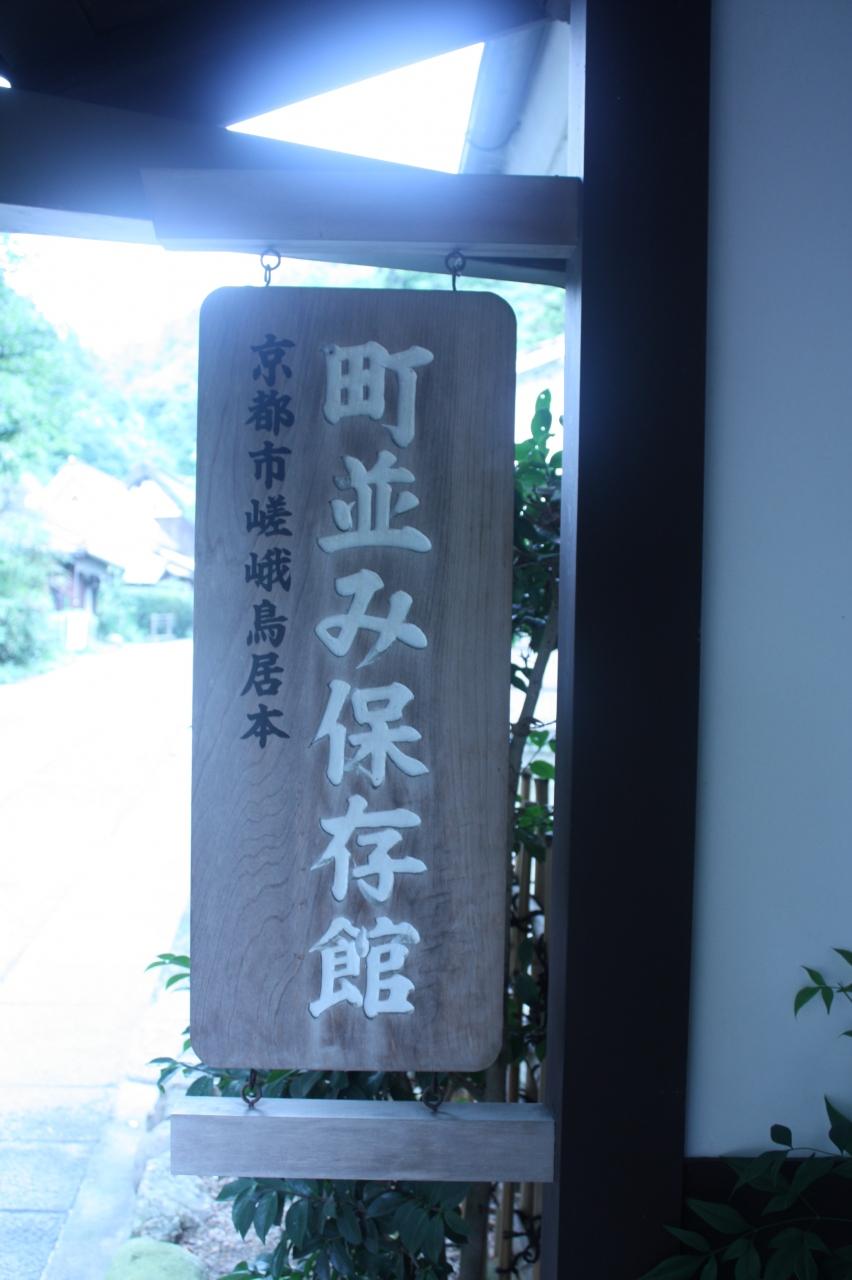 町並み保存館
京都市嵯峨鳥居本